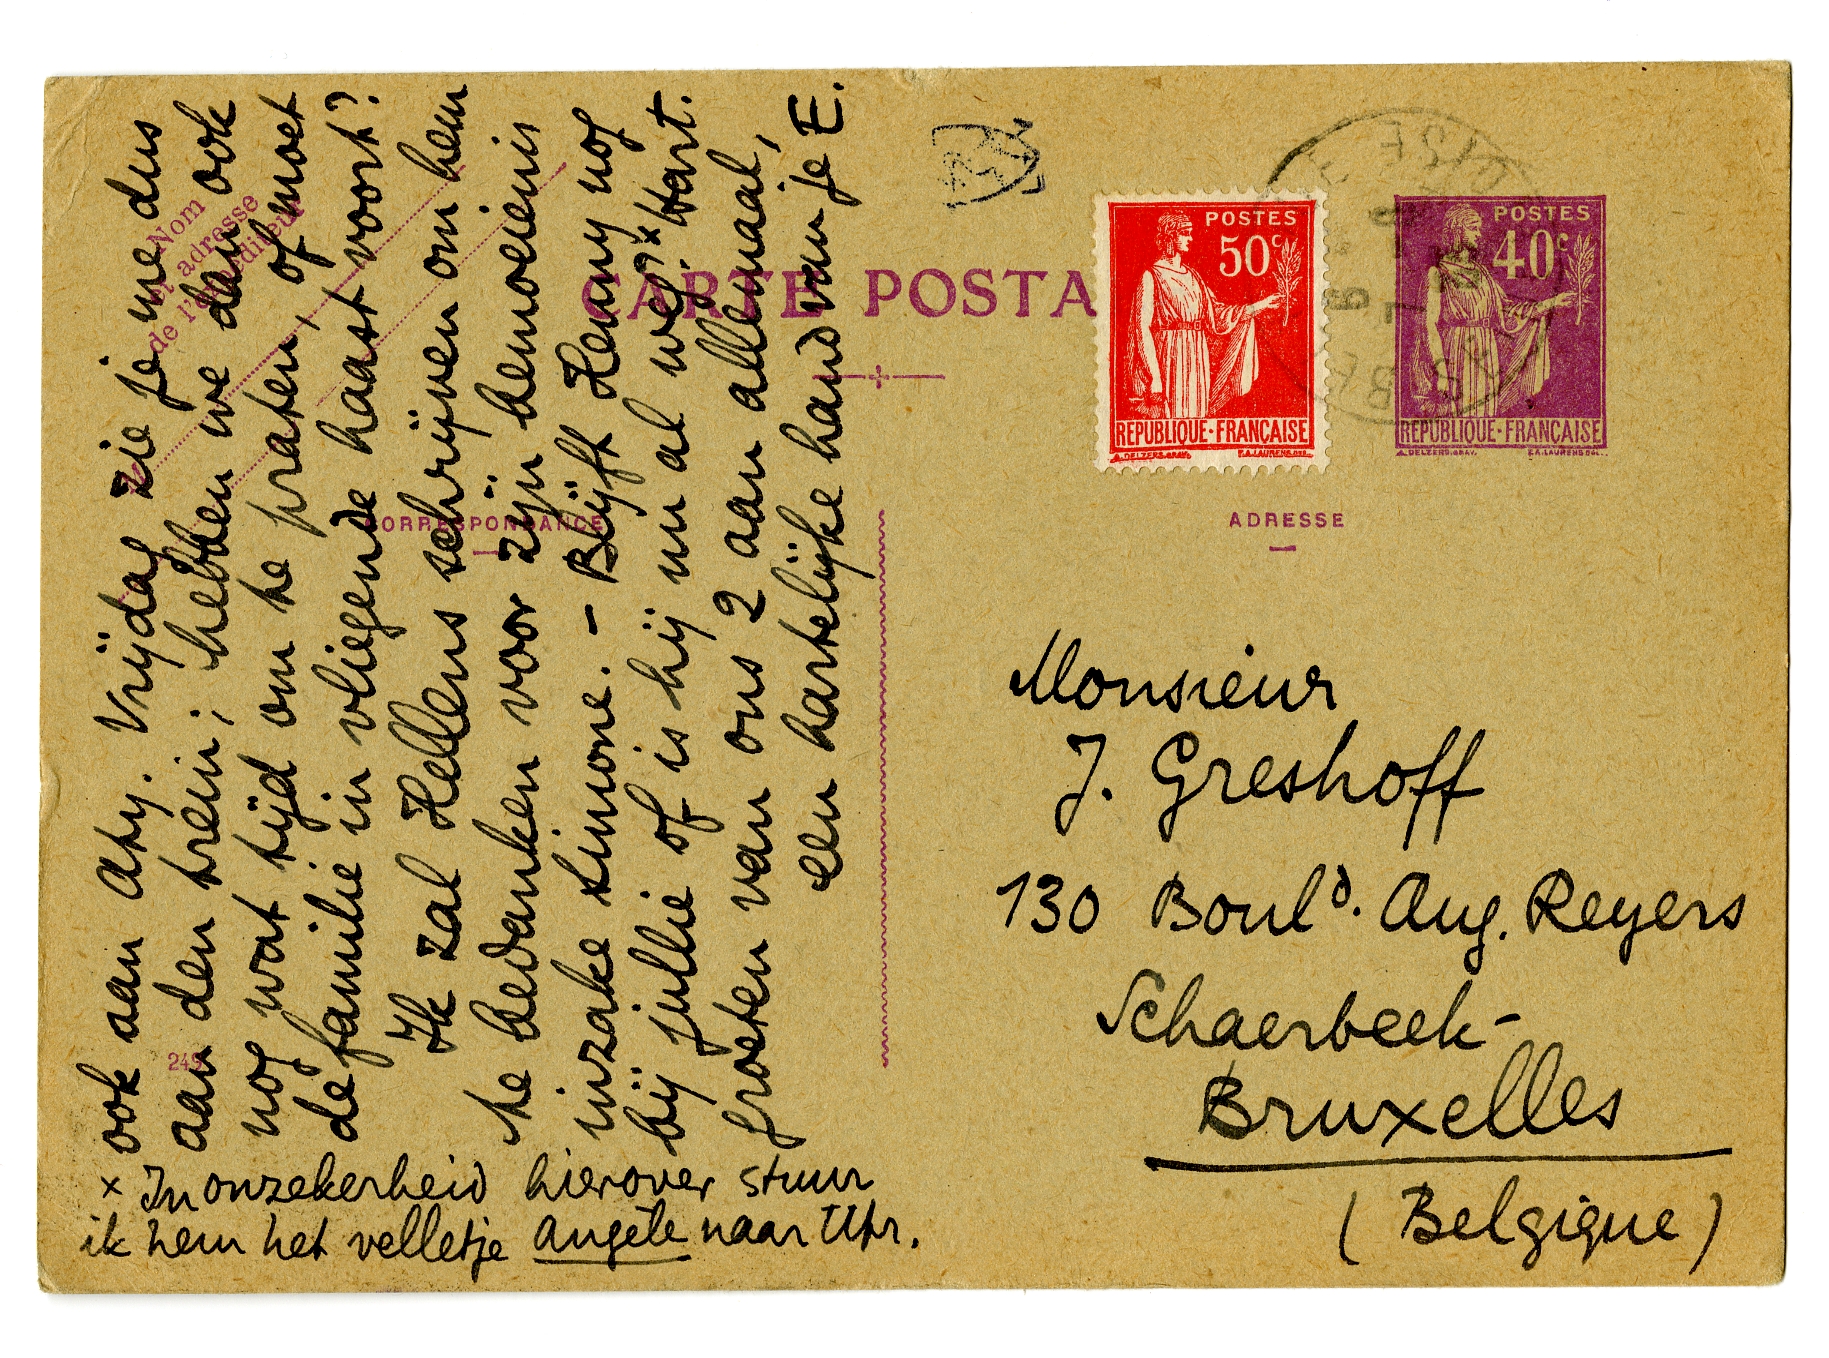 ook aan Aty. Vrijdag zie je me dus
aan den trein; hebben we dan ook
nog wat tijd om te praten, of moet
de familie in vliegende haast voort?
Ik zal Hellens schrijven om hem
te bedanken voor zijn bemoeienis
inzake Simone. – Blijft Henny nog
bij jullie of is hij nu al weg?× Hart.
groeten van ons 2 aan allemaal,
een hartelijke hand van je E.
× In onzekerheid hierover stuur
ik hem het velletje Angèle naar Utr.
Nom
et adresse
de l'expéditeur
CARTE POSTA
CORRESPONDANCE
249
POSTES
50c
REPUBLIQUE·FRANÇAISE
POSTES
40c
REPUBLIQUE·FRANÇAISE
ADRESSE
Monsieur
J. Greshoff
130 Bould. Aug. Reyers
Schaerbeek-
Bruxelles
(Belgique)